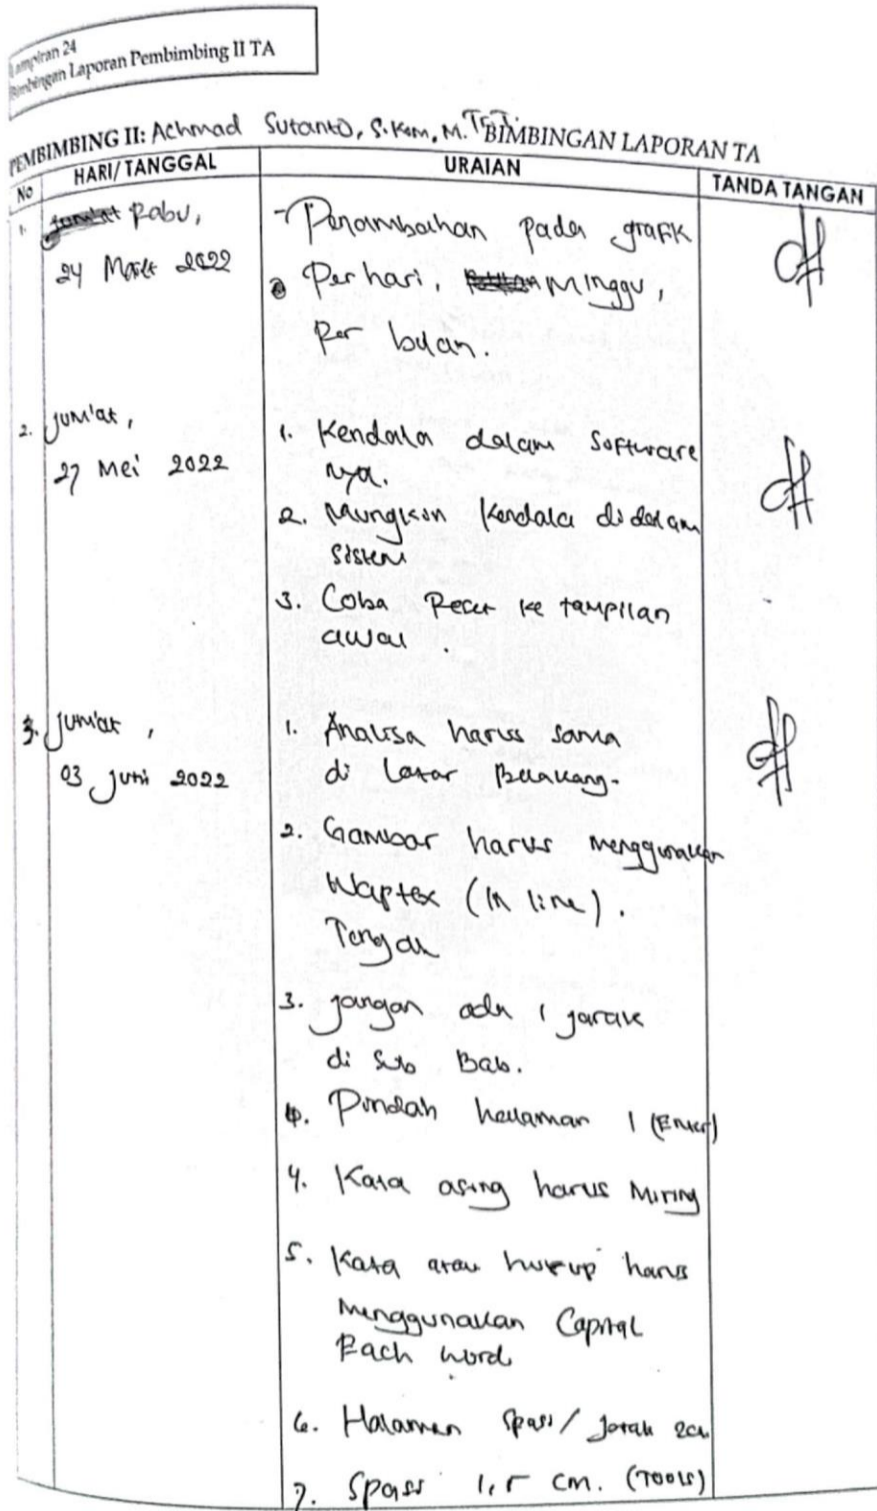 Lampiran 24
Bimbingan Laporan Pembimbing II TA
BIMBINGAN LAPORAN TA
PEMBIMBING II: Achmad Sutanto, S.Kom, M.
No HARI/TANGGAL URAIAN TANDA TANGAN
1. Rabu, - Penambahan pada grafik
24 Maret 2022 Per hari, Minggu,
Per bulan.
2. Jum'at, 1. Kendala dalam Software
27 Mei 2022 nya.
2. Mungkin Kendala di dalam
sistem
3. Coba ke tampilan
awal.
3. Jum'at, 1. Analisa harus sama
03 Juni 2022 di Latar Belakang.
2. Gambar harus menggunakan
(In line).
Tengah
3. Jangan ada 1 jarak
di Sub Bab.
4. Pindah halaman 1 (Enter)
4. Kata asing harus Miring
5. Kata atau hurup harus
Menggunakan Capital
Each word
6. Halaman Spasi/Jarak
7. Spasi 1,5 cm. (Tools)